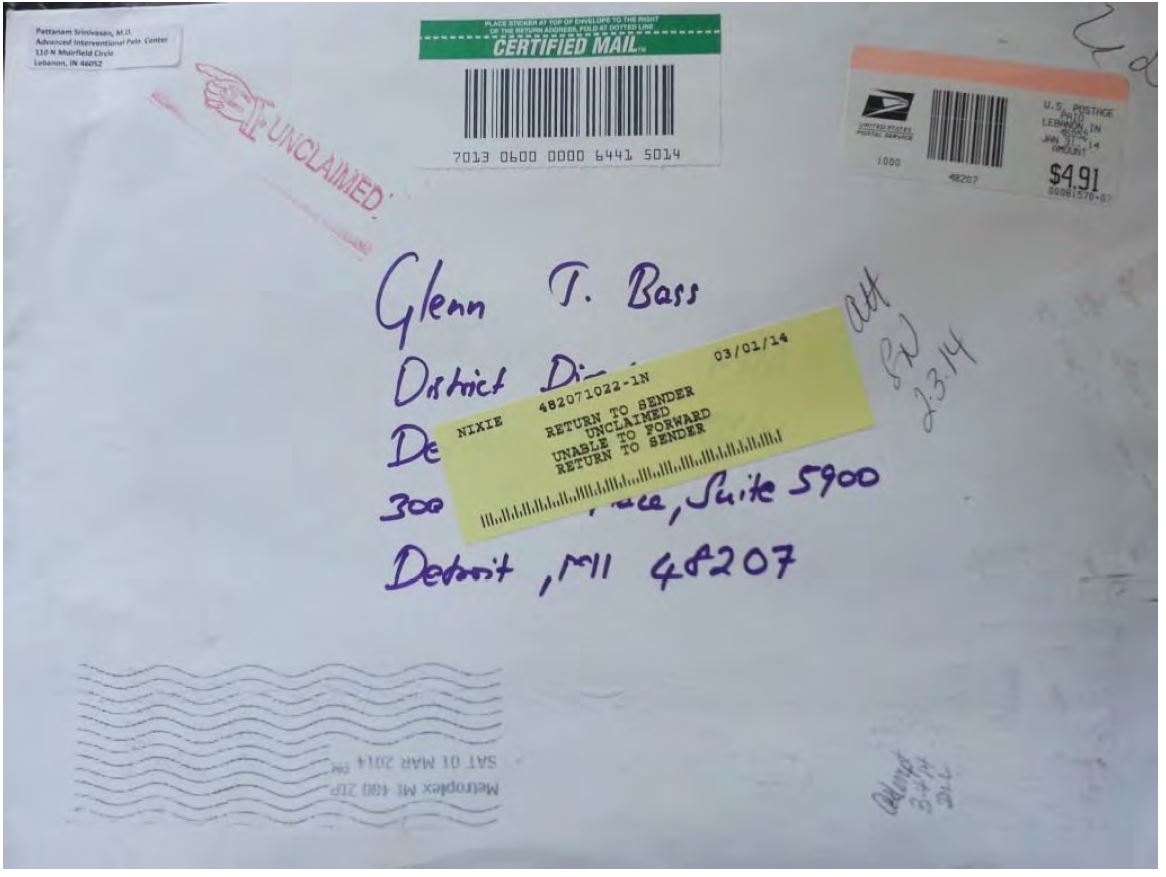 Pattanam Srinivasan, M.D.
Advanced Interventional Pain Center
110 N Muirfield Circle
Lebanon, IN 46052
UNCLAIMED
PLACE STICKER AT TOP OF ENVELOPE TO THE RIGHT
OF THE RETURN ADDRESS, FOLD AT DOTTED LINE
CERTIFIED MAIL™
7013 0600 0000 6441 5014
UNITED STATES
POSTAL SERVICE
1000
48207
U.S. POSTAGE
PAID
LEBANON, IN
46052
JAN 31, 14
AMOUNT
$4.91
00081570-07
Glenn T. Bass
District
De
300 Suite 5900
Detroit, MI 48207
NIXIE 482071022-1N 03/01/14
RETURN TO SENDER
UNCLAIMED
UNABLE TO FORWARD
RETURN TO SENDER
att
2.3.14
SAT 01 MAR 2014 PM
Metroplex MI 480 ZIP
Attempt
3-4-14